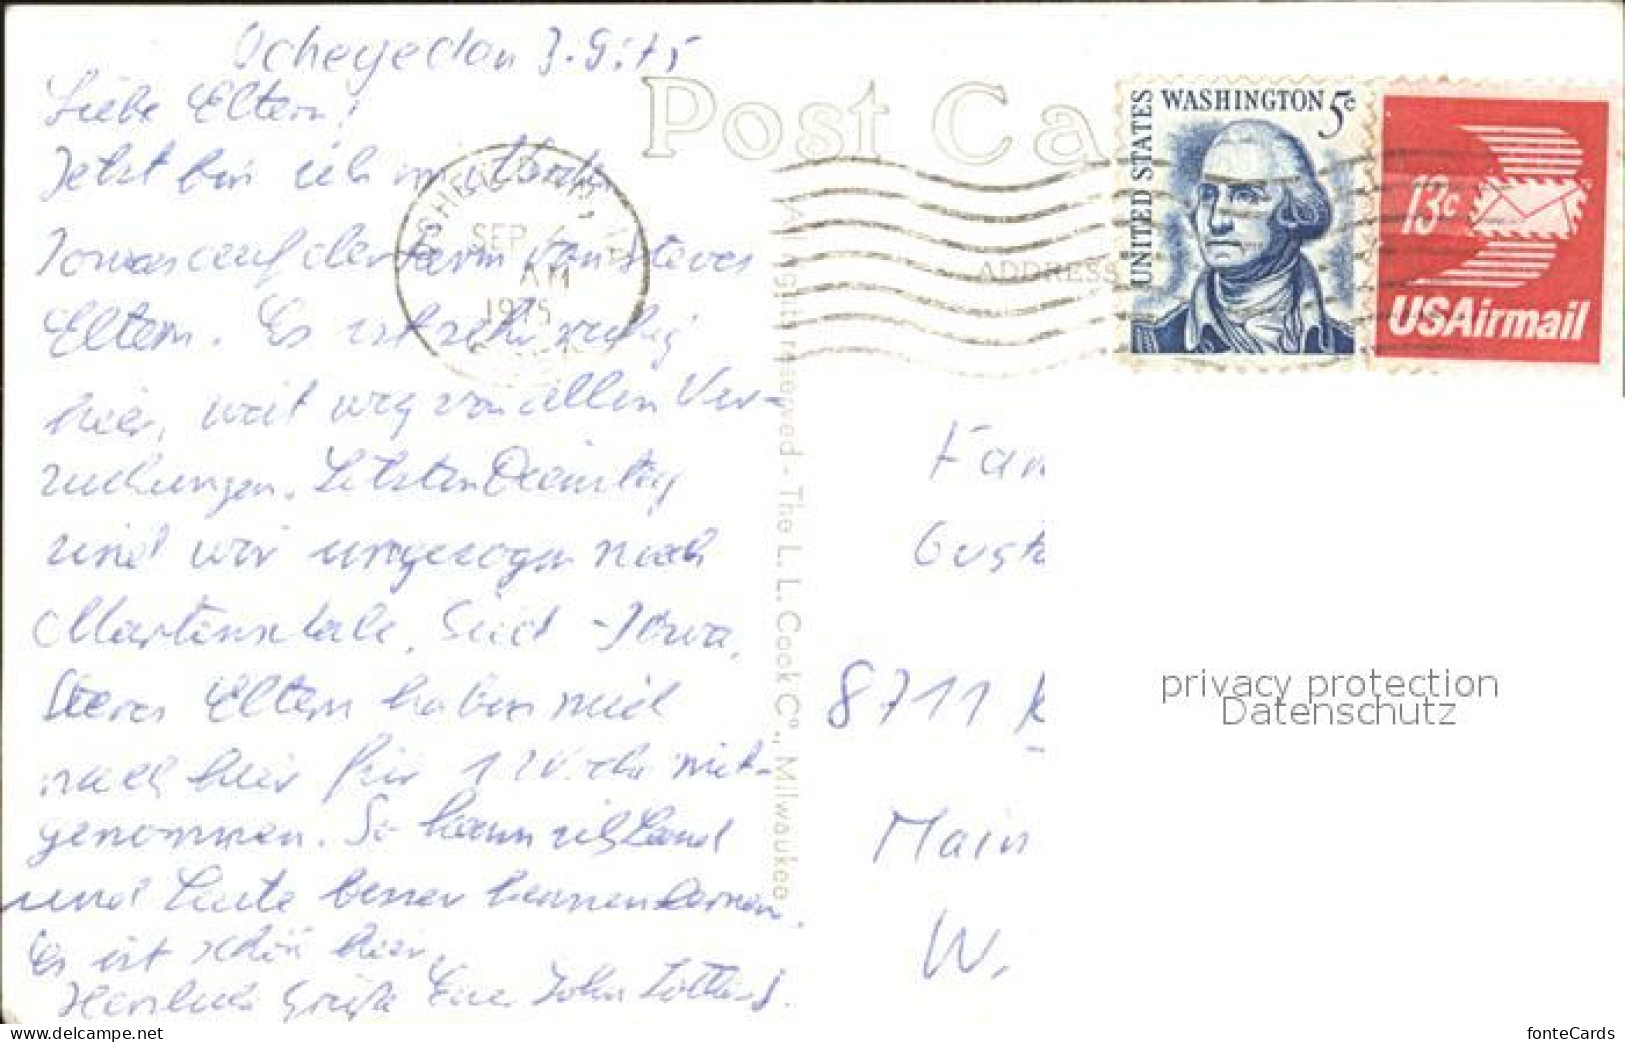 Ocheyedan 3.9.75
Liebe Eltern!
Jetzt bin ich im Norden
Iowas auf der Farm von Steves
Eltern. Es ist sehr ruhig
hier, weit weg von allen Ver-
suchungen. Letzten Dienstag
sind wir umgezogen nach
Martensdale, Süd-Iowa.
Steves Eltern haben mich
nach hier für 1 Woche mit-
genommen. So kann ich Land
und Leute besser kennenlernen.
Es ist schön hier.
Herzliche Grüße Euer John
Post Ca
ADDRESS
SEP
AM
1975
UNITED STATES
WASHINGTON 5c
13c
USAirmail
All rights reserved - The L. L. Cook Co., Milwaukee
Fam
Gusta
8711 K
Main
W.
privacy protection
Datenschutz
www.delcampe.net
fonteCards